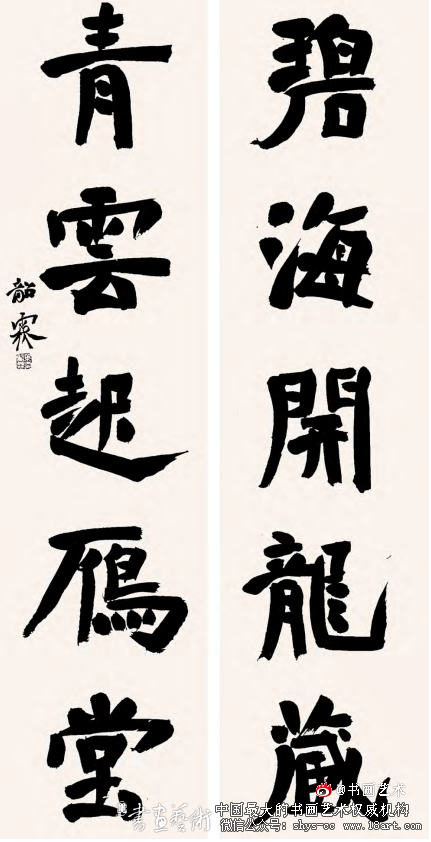 碧海開龍藏
青雲起鴈堂
韶霖
@书画艺术
書畫藝術
中国最大的书画艺术权威机构
微信公众号：shys-cc www.18art.com